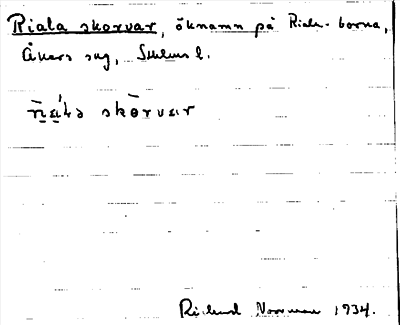 Riala skorvar, öknamn på Riala-borna,
Åkers sng, Sthlms l.
skorvar
Richard Norrman 1934.